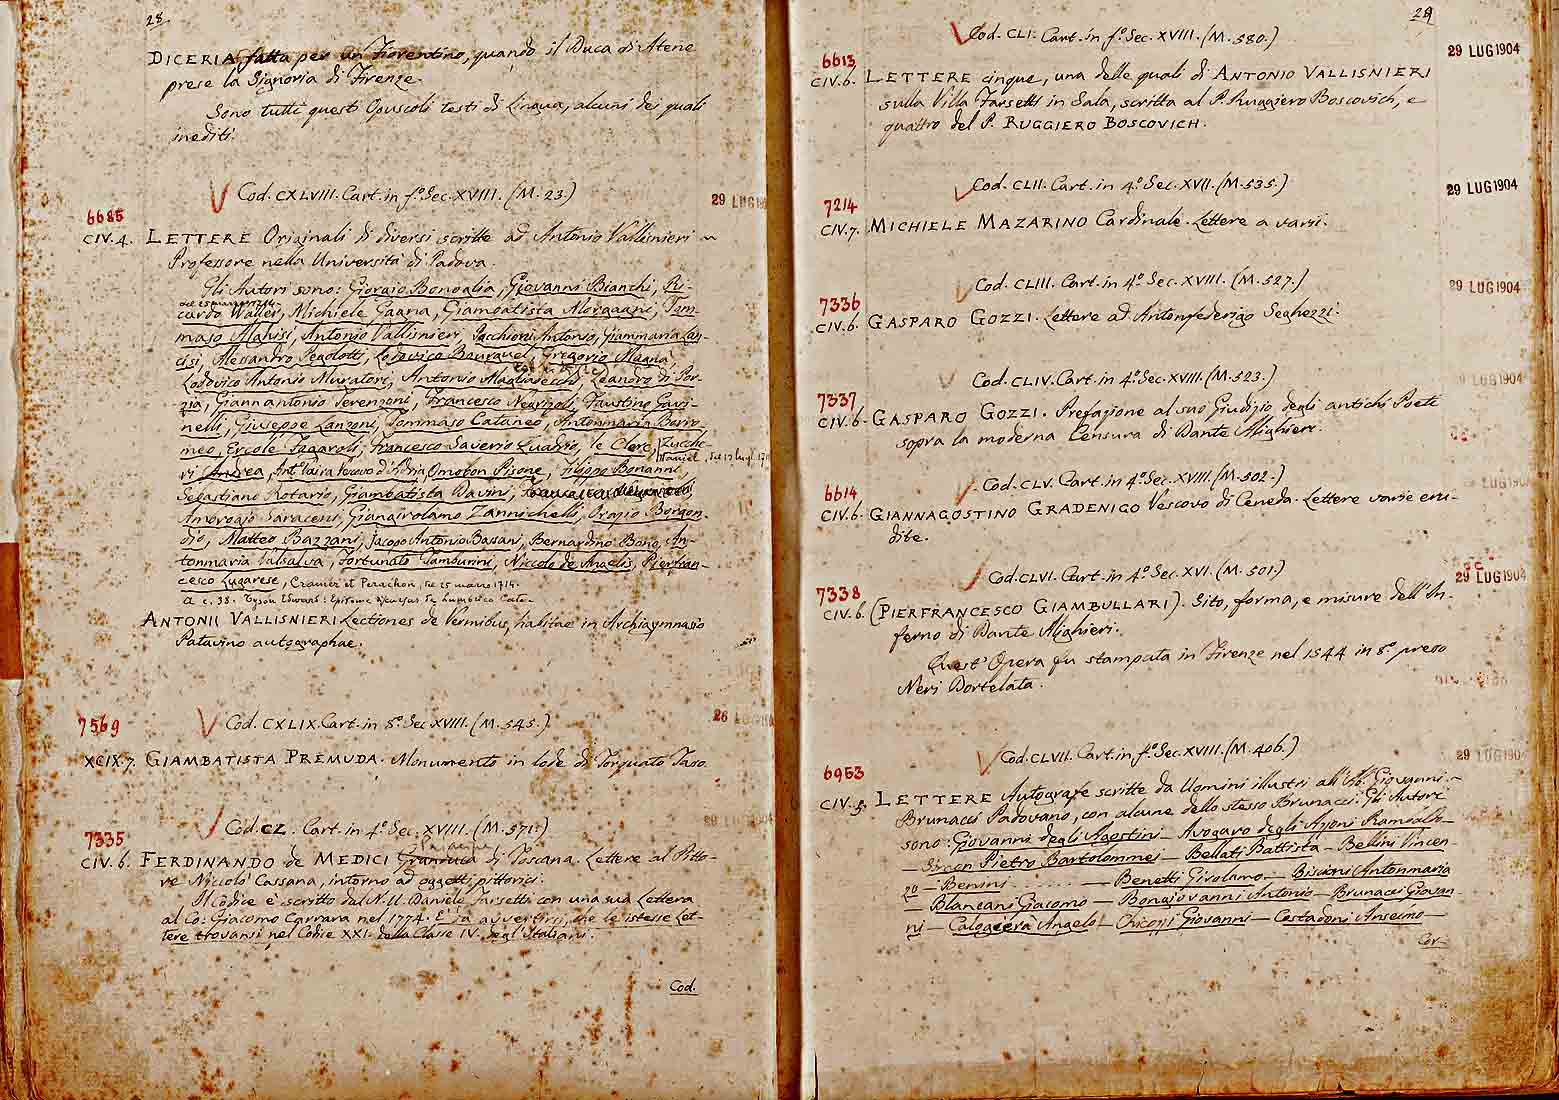 28
DICERIA fatta per un Fiorentino, quando il Duca di Atene
prese la Signoria di Firenze.
Sono tutti questi Opuscoli testi di Lingua, alcuni dei quali
inediti.
Cod. CXLVIII. Cart. in fº. Sec. XVIII. (M. 23.)
29 LUG 19
6685
CIV. 4. LETTERE Originali di diversi scritte ad Antonio Vallisnieri
Professore nella Università di Padova.
Gli Autori sono: Giorgio Bonoglia, Giovanni Bianchi, Ri-
cardo Waller, Michiele Gagna, Giambatista Morgagni, Tom-
maso Alghisi, Antonio Vallisnieri, Pacchioni Antonio, Giammaria Lan-
cisi, Alessandro Pegolotti, Lodovico Bourguet, Gregorio Magna,
Lodovico Antonio Muratori, Antonio Magliavecchi, Leandro di Por-
zia, Giannantonio Serenzoni, Francesco Negrisoli, Faustino Gavi-
nelli, Giuseppe Lanzoni, Tommaso Cataneo, Antonmaria Borro-
meo, Ercole Fagaroli, Francesco Saverio Quadrio, le Clerc, Zucche-
ri Andrea, Omobon Pisone, Filippo Bonanni,
Sebastiano Rotario, Giambatista Davini,
Ambrogio Saraceni, Giangirolamo Zannichelli, Orazio Borgon-
dio, Matteo Bazzani, Jacopo Antonio Bassani, Bernardino Bono, An-
tonmaria Valsalva, Fortunato Tamburini, Niccolo de Angelis, Pierfran-
cesco Lugarese, Cramer et Perachon, de 25 marzo 1714.
a c. 38. Tyson Edward: Epitome
ANTONII VALLISNIERI Lectiones de Vermibus, habitae in Archigymnasio
Patavino autographae.
Cod. CXLIX. Cart. in 8º. Sec. XVIII. (M. 545.)
26 LUG
7569
XCIX 7. GIAMBATISTA PREMUDA. Monumento in lode di Torquato Taso
Cod. CL. Cart. in 4º. Sec. XVIII. (M. 571.)
29 LUG
7335
CIV. 6. FERDINANDO de MEDICI Granduca di Toscana. Lettere al Pitto-
re Niccolò Cassana, intorno ad oggetti pittorici.
Il Codice è scritto dal N. U. Daniele Farsetti con una sua Lettera
al Co: Giacomo Carrara nel 1774. E' da avvertirsi, che le istesse Let-
tere trovansi nel Codice XXI. della Classe IV. degl'Italiani.
Cod.
29
Cod. CLI. Cart. in fº. Sec. XVIII. (M. 580.)
29 LUG 1904
6613
CIV. 6. LETTERE cinque, una delle quali di ANTONIO VALLISNIERI
sulla Villa Farsetti in Sala, scritta al P. Ruggiero Boscovich, e
quattro del P. RUGGIERO BOSCOVICH.
Cod. CLII. Cart. in 4º. Sec. XVII. (M. 535.)
29 LUG 1904
7214
CIV. 7. MICHIELE MAZARINO Cardinale. Lettere a varii.
Cod. CLIII. Cart. in 4º. Sec. XVIII. (M. 527.)
29 LUG 1904
7336
CIV. 6. GASPARO GOZZI. Lettere ad Antonfederigo Seghezzi.
Cod. CLIV. Cart. in 4º. Sec. XVIII. (M. 523.)
29 LUG 1904
7337
CIV. 6. GASPARO GOZZI. Prefazione al suo Giudizio degli antichi Poeti
sopra la moderna Censura di Dante Alighieri.
Cod. CLV. Cart. in 4º. Sec. XVIII. (M. 502.)
29 LUG 190
6614
CIV. 6. GIANNAGOSTINO GRADENIGO Vescovo di Ceneda. Lettere varie eru-
dite.
Cod. CLVI. Cart. in 4º. Sec. XVI. (M. 501.)
29 LUG 1904
7338
CIV. 6. (PIERFRANCESCO GIAMBULLARI). Sito, forma, e misure dell'In-
ferno di Dante Alighieri.
Quest' Opera fu stampata in Firenze nel 1544 in 8º. presso
Neri Dortelata.
Cod. CLVII. Cart. in fº. Sec. XVIII. (M. 406.)
29 LUG 1904
6953
CIV. 5. LETTERE Autografe scritte da Uomini illustri all'Ab. Giovanni
Brunacci Padovano, con alcune dello stesso Brunacci. Gli Autori
sono: Giovanni degli Agostini — Avogaro degli Azzoni Rambaldo
— Pietro Bartolommei — Bellati Battista — Bellini Vincen-
zo — Benini . . . . . — Benetti Girolamo — Biscioni Antonmaria
— Blancani Giacomo — Bongiovanni Antonio — Brunacci Giovan-
ni — Calogierà Angelo — Chiozzi Giovanni — Costadoni Anselmo —
Cor-